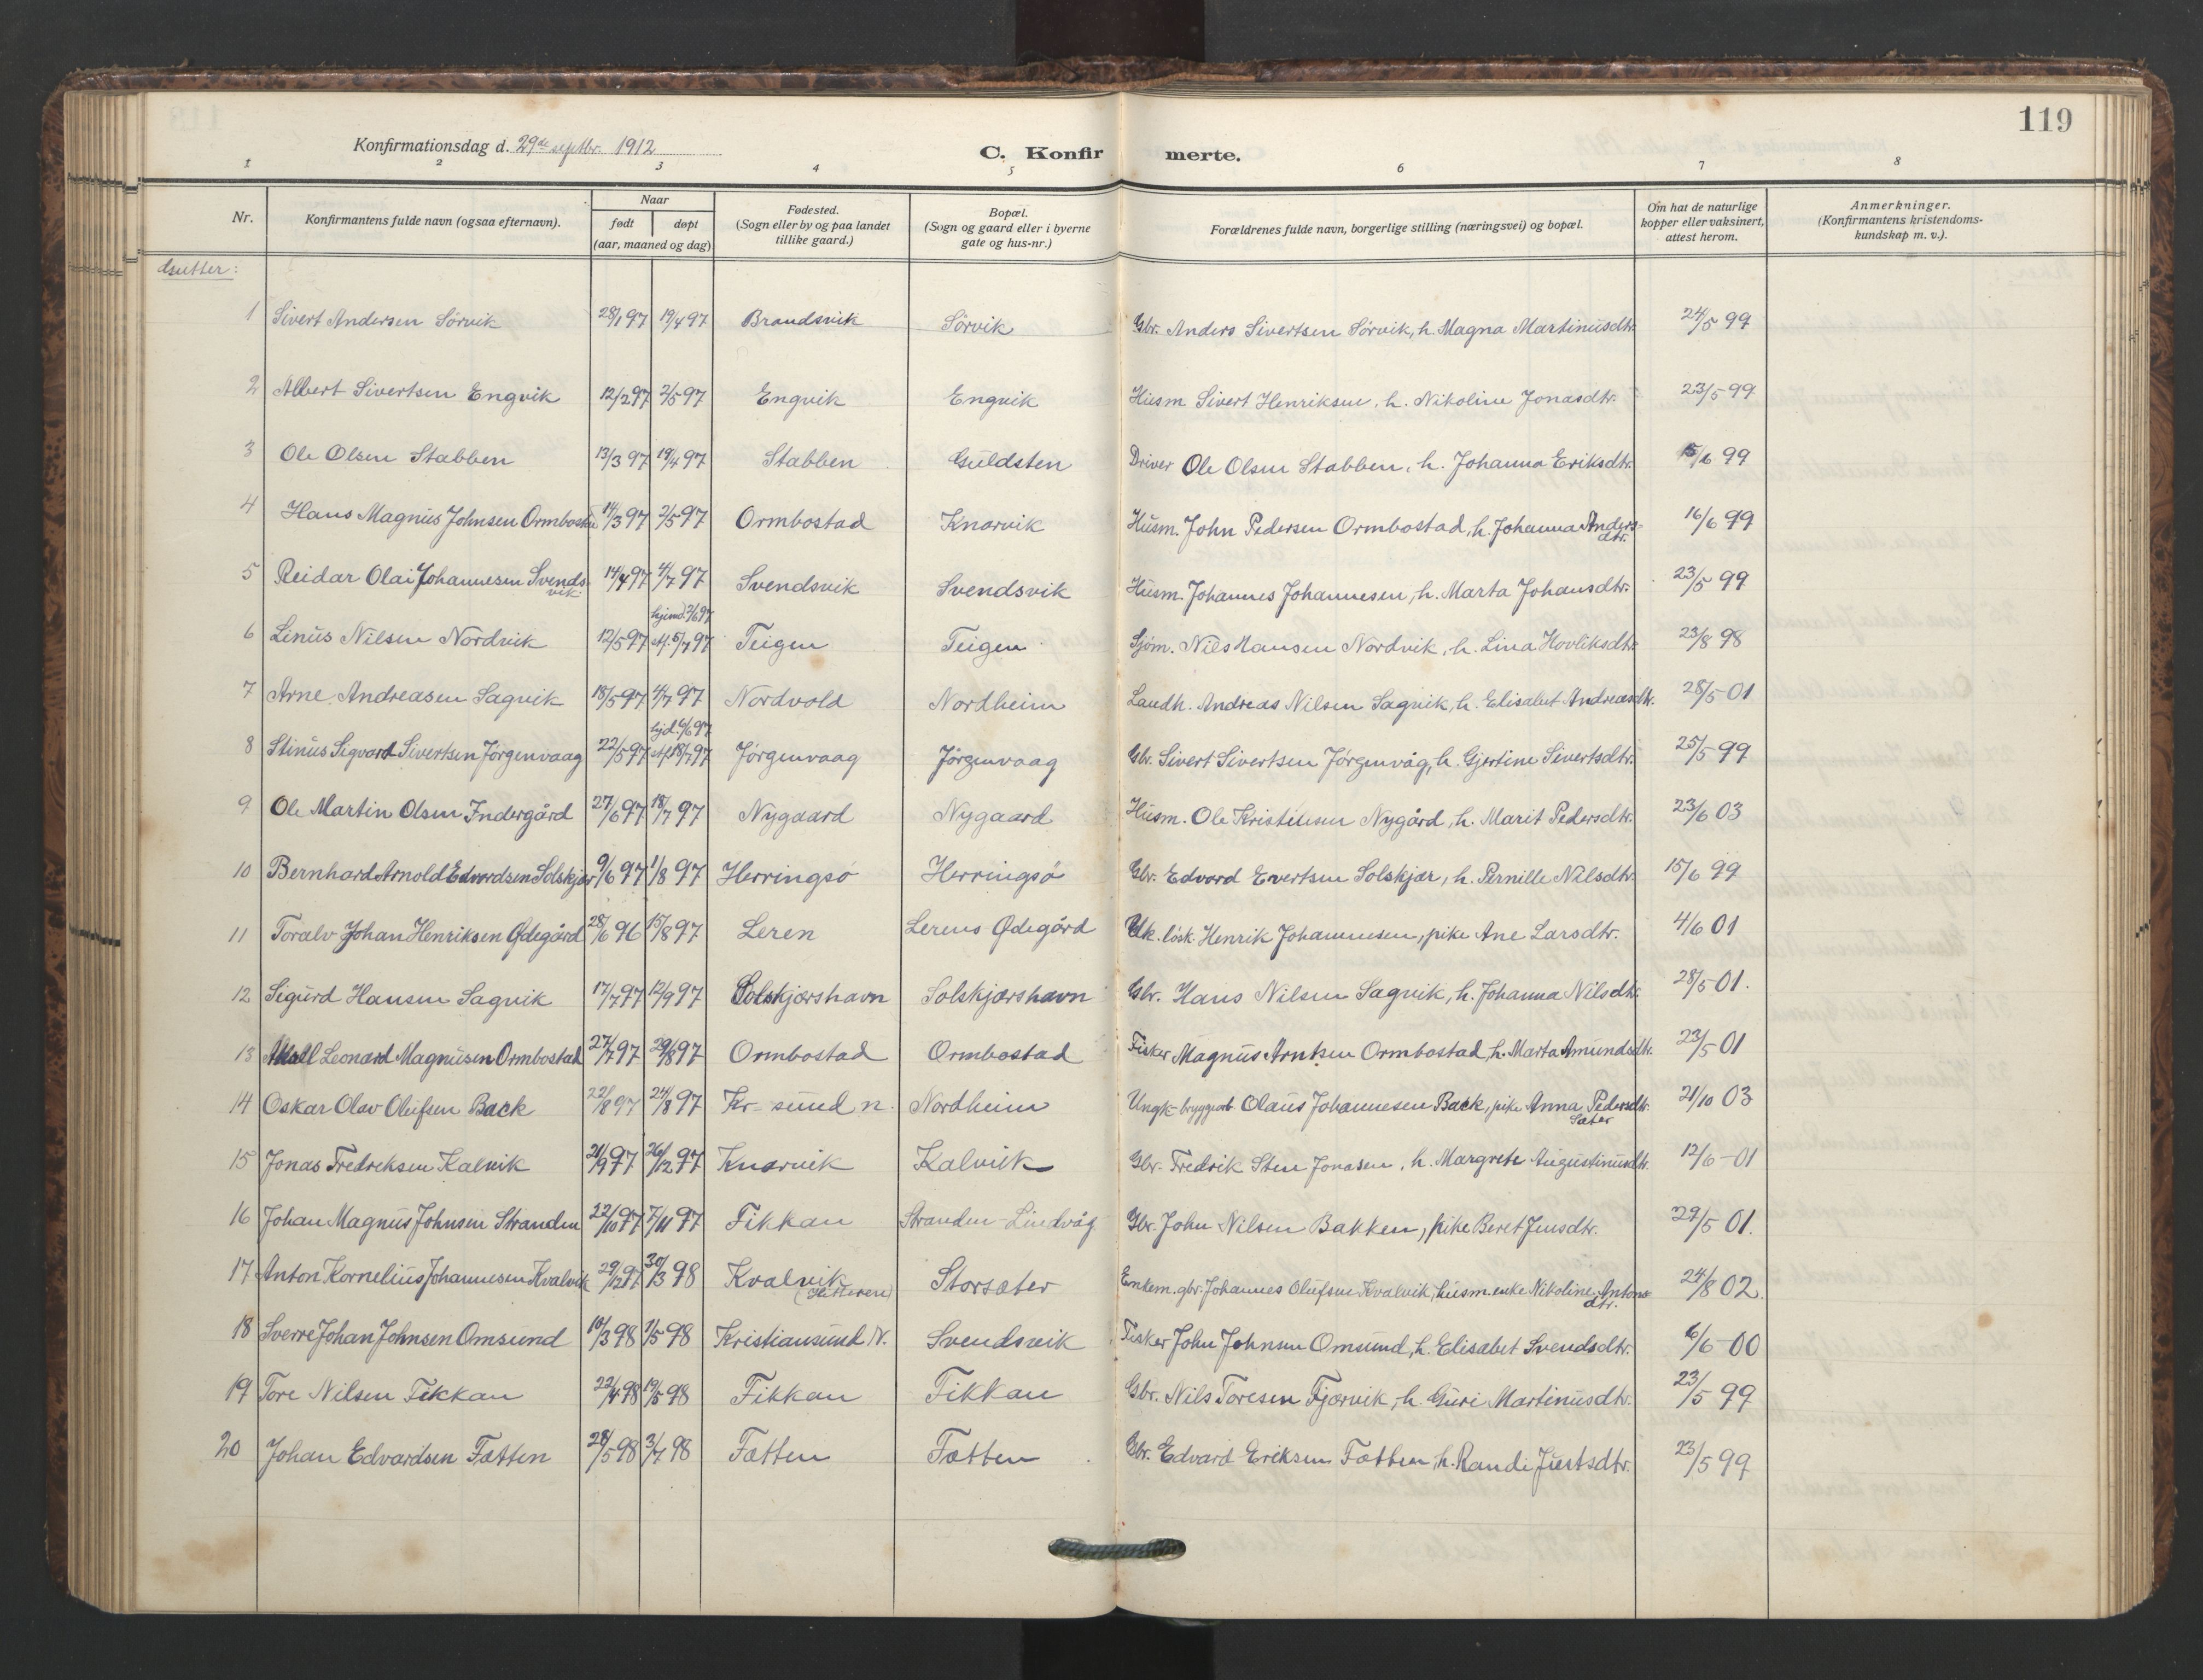 119
Konfirmationsdag d. 29de septbr. 1912
C. Konfirmerte.
1 2 3 4 5 6 7 8
Nr. | Konfirmantens fulde navn (ogsaa efternavn). | Naar født døpt (aar, maaned og dag) | Fødested. (Sogn eller by og paa landet tillike gaard.) | Bopæl. (Sogn og gaard eller i byerne gate og hus-nr.) | Forældrenes fulde navn, borgerlige stilling (næringsvei) og bopæl. | Om hat de naturlige kopper eller vaksinert, attest herom. | Anmerkninger. (Konfirmantens kristendomskundskap m. v.).
Gutter:
1 Sivert Andersen Sörvik 28/1 97 19/4 97 Brandsvik Sörvik Gbr. Anders Sivertsen Sörvik, h. Magna Martinusdtr. 24/5 99
2 Albert Sivertsen Engvik 12/2 97 2/5 97 Engvik Engvik Husm Sivert Henriksen, h. Nikoline Jonasdtr. 23/5 99
3 Ole Olsen Stabben 13/3 97 19/4 97 Stabben Guldsten Driver Ole Olsen Stabben, h. Johanna Eriksdtr. 15/6 99
4 Hans Magnus Johnsen Ormbostad 14/3 97 2/5 97 Ormbostad Knarvik Husm. John Pedersen Ormbostad, h. Johanna Andersdtr. 16/6 99
5 Reidar Olai Johannesen Svendsvik 14/4 97 4/7 97 Svendsvik Svendsvik Husm. Johannes Johannesen, h. Marta Johansdtr. 23/5 99
6 Linus Nilsen Nordvik 12/5 97 hjemd. 2/6 97 st. 5/7 97 Teigen Teigen Sjöm. Nils Hansen Nordvik, h. Lina Hovliksdtr. 23/8 98
7 Arne Andreasen Sagvik 18/5 97 4/7 97 Nordvold Nordheim Landh. Andreas Nilsen Sagvik, h. Elisabet Andreasdtr. 28/5 01
8 Stinus Sigvard Sivertsen Jörgenvaag 22/5 97 hjd. 6/6 97 st. 18/7 97 Jörgenvaag Jörgenvaag Gbr. Sivert Sivertsen Jörgenvåg, h. Gjertine Sivertsdtr. 25/5 99
9 Ole Martin Olsen Indergård 27/6 97 18/7 97 Nygaard Nygaard Husm. Ole Kristensen Nygård, h. Marit Pedersdtr. 23/6 03
10 Bernhard Arnold Edvardsen Solskjær 9/6 97 1/8 97 Herringsö Herringsö Gbr. Edvard Evertsen Solskjær, h. Pernille Nilsdtr. 15/6 99
11 Toralv Johan Henriksen Ødegård 28/6 96 15/8 97 Leren Lerens Ødegård Uk. lösk. Henrik Johannesen, pike Ane Larsdtr. 4/6 01
12 Sigurd Hansen Sagvik 17/7 97 12/9 97 Solskjærshavn Solskjærshavn Gbr. Hans Nilsen Sagvik, h. Johanna Nilsdtr. 28/5 01.
13 Leonard Magnusen Ormbostad 27/7 97 29/8 97 Ormbostad Ormbostad Fisker Magnus Arntsen Ormbostad, h. Marta Amundsdtr. 23/5 01
14 Oskar Olav Olufsen Back 22/8 97 24/8 97 Kr-sund n. Nordheim Ungk-bryggearb. Olaus Johannesen Back, pike Anna Pedersdtr. Sæter 21/10 03
15 Jonas Fredreksen Kalvik 21/9 97 26/12 97 Knarvik Kalvik Gbr. Fredrik Sten Jonasen, h. Margrete Augustinusdtr. 12/6-01
16 Johan Magnus Johnsen Stranden 22/10 97 7/11 97 Fikkan Stranden-Lindvåg Gbr. John Nilsen Bakken, pike Beret Jensdtr. 29/5 01.
17 Anton Kornelius Johannesen Kvalvik 29/12 97 30/3 98 Kvalvik (Hitteren) Storsæter Enkem. gbr. Johannes Olufsen Kvalvik, husm. enke Nikoline Antonsdtr. 24/8 02.
18 Sverre Johan Johnsen Omsund 10/3 98 1/5 98 Kristiansund N. Svendsvik Fisker John Johnsen Omsund, h. Elisabet Svendsdtr. 6/6-00
19 Tore Nilsen Fikkan 22/4 98 19/5 98 Fikkan Fikkan Gbr. Nils Toresen Fjærvik, h. Guri Martinusdtr. 23/5 99
20 Johan Edvardsen Fætten 28/5 98 3/7 98 Fætten Fætten Gbr. Edvard Eriksen Fætten, h. Randi Juertsdtr. 23/5 99